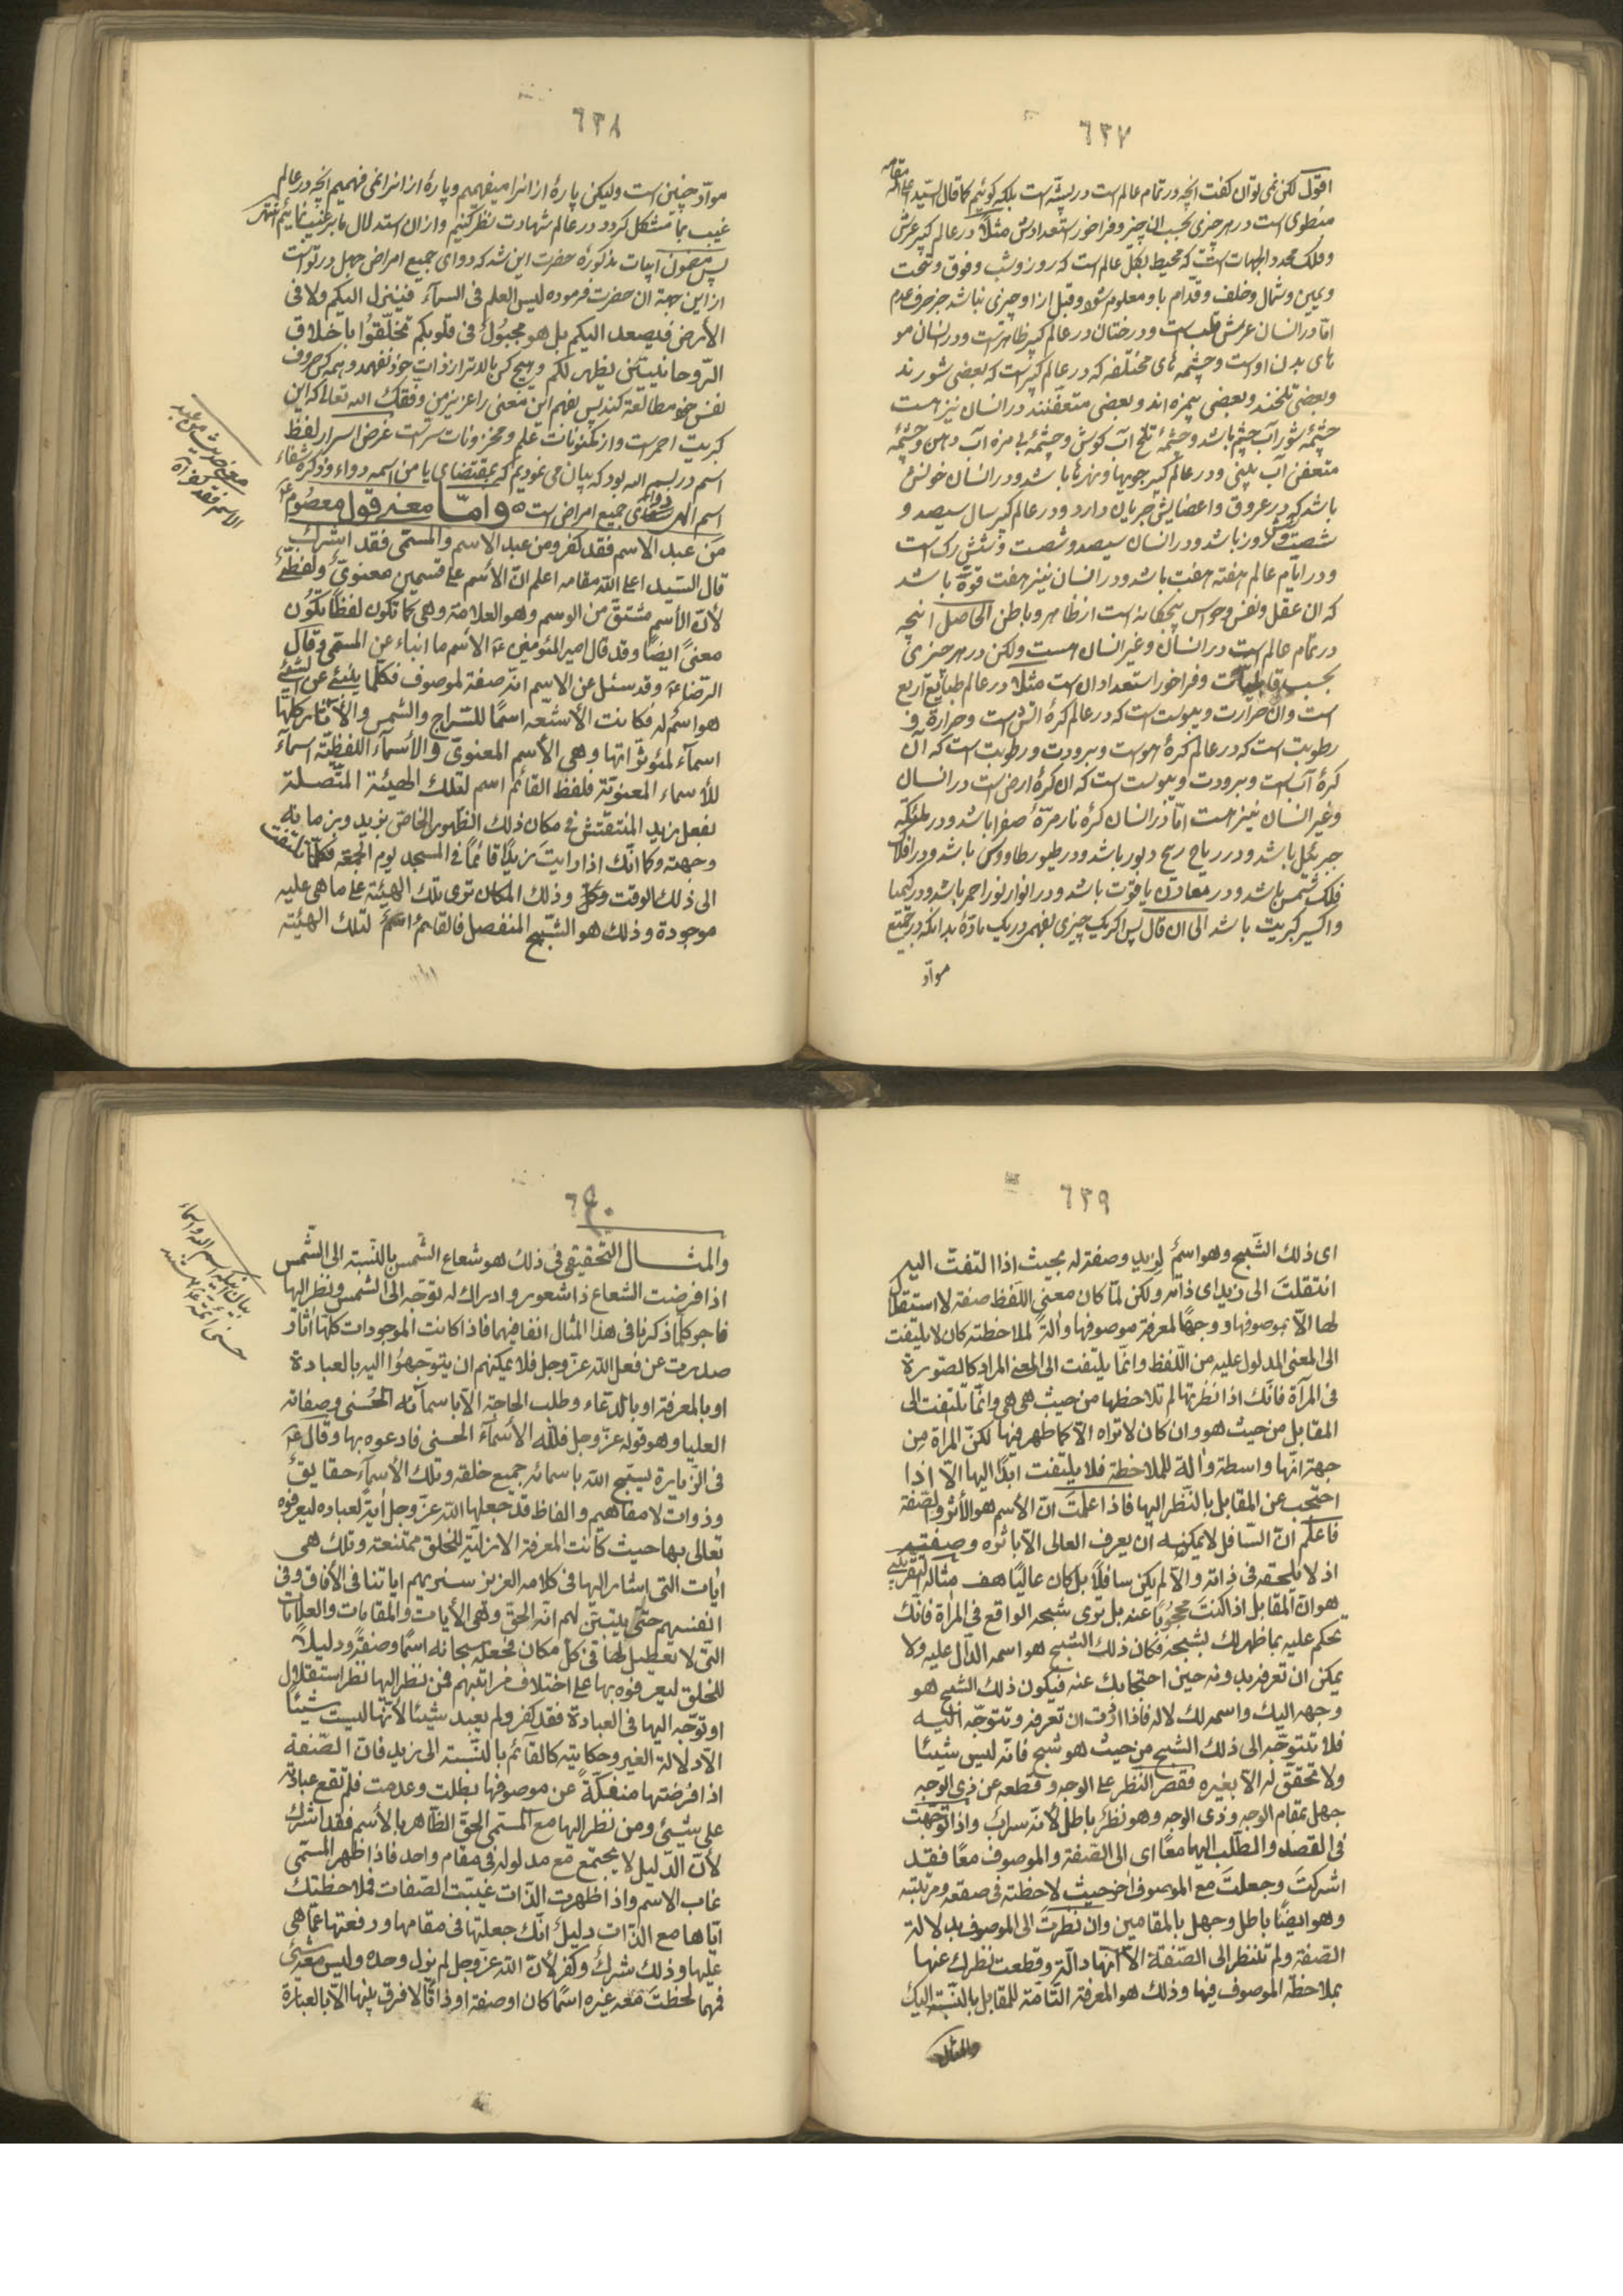 ٦٣٧
اقول لکن نمی توان گفت انچه در تمام عالم است در پشّه است بلکه گوئیم کما قال السّید اعلی الله مقامه
منطوی است در هر چیزی بحسب ان چیز و فراخور استعدادش مثلاً در عالم کبیر عرش
و فلک محدد الجهات است که محیط بکل عالم است که روز و شب و فوق و تحت
و یمین و شمال و خلف و قدام باو معلوم شود و قبل از او چیزی نباشد جز حرف عدم
امّا در انسان عرش قلب است و درختان در عالم کبیر ظاهر است و در انسان مو
های بدن اوست و چشمه های مختلفه که در عالم کبیر است که بعضی شورند
و بعضی تلخند و بعضی بیمزه اند و بعضی متعفنند در انسان نیز هست
چشمهٔ شور آب چشم باشد و چشمهٔ تلخ آب گوش و چشمهٔ بی مزه آب دهن و چشمهٔ
متعفن آب بینی و در عالم کبیر جویها و نهرها باشد و در انسان خونش
باشد که در عروق و اعضایش جریان دارد و در عالم کبیر سال سیصد و
شصت و شش روز باشد و در انسان سیصد و شصت و شش رگ است
و در ایّام عالم هفته هفت باشد و در انسان نیز هفت قوّة باشد
که ان عقل و نفس و حواس پنجگانه است از ظاهر و باطن الحاصل انچه
در تمام عالم است در انسان و غیر انسان هست ولکن در هر چیزی
بحسب قابلیّت و فراخور استعداد ان است مثلا در عالم طبایع اربع
است و ان حرارت و یبوست است که در عالم کرهٔ اتش است و حرارة و
رطوبت است که در عالم کرهٔ هواست و برودت و رطوبت است که آن
کرهٔ آب است و برودت و یبوست است که ان کرهٔ ارض است در انسان
و غیر انسان نیز هست امّا در انسان کرهٔ نار مرّهٔ صفرا باشد و در ملائکه
جبرئیل باشد و در ریاح ریح دبور باشد و در طیور طاووس باشد و در افلاک
فلک شمس باشد و در معادن یاقوت باشد و در انوار نور احمر باشد و در کیمیا
و اکسیر کبریت باشد الی ان قال پس اگر یک چیزی بفهمی در یک مادّه بدانکه در جمیع
موادّ
٦٣٨
موادّ چنین است ولیکن پارهٔ از انرا میفهمیم و پارهٔ از انرا نمی فهمیم انچه در عالم
غیب بما مشکل گردد در عالم شهادت نظر کنیم و از ان استدلال بامر غیب نمائیم انتهی
پس مضمون ابیات مذکورهٔ حضرت این شد که دوای جمیع امراض جهل در تو است
از این جهة ان حضرت فرموده لیس العلم فی السمآء فینزل الیکم ولا فی
الأرض فیصعد الیکم بل هو مجبول فی قلوبکم تخلّقوا باخلاق
الرّوحانیین یظهر لکم و هیچ کس بالاتر از ذات خود نفهمد و همه کس حروف
نفس خود مطالعه کند پس بفهم این معنی را عزیز من وفقک الله تعالی که این
کبریت احمر است و از مکنونات علم و مخزونات سر است غرض اسرار لفظ
اسم در بسم الله بود که بیان می نمودیم که بمقتضای یا من اسمه دواء و ذکره شفاء
اسم الهی دوای جمیع امراض است و امّا معنی قول معصوم ع
من عبد الاسم فقد کفر و من عبد الاسم والمسمّی فقد اشرک
قال السّید اعلی الله مقامه اعلم انّ الأسم علی قسمین معنویّ ولفظیّ
لأنّ الأسم مشتقّ من الوسم وهو العلامة وهی کما تکون لفظاً یکون
معنیً ایضاً وقد قال امیر المؤمنین ع الاسم ما انباء عن المسمّی وقال
الرّضا ع وقد سئل عن الاسم انّه صفة لموصوف فکلّما ینبئ عن الشیئ
هو اسم له فکانت الأشعّه اسمًا للسّراج والشمس والأثار کلّها
اسمآء لمؤثراتها وهی الأسم المعنوی والأسمآء اللفظیّة اسمآء
للأسماء المعنویّة فلفظ القائم اسم لتلک الهیئة المتّصلة
بفعل زید المنتقش فی مکان ذلک الظهور الخاص بزید وبزمانه
وجهته وکما انّک اذا رایت زیدًا قائماً فی المسجد یوم الجمعة فکلّما تلتفت
الی ذلک الوقت وذلک المکان تری تلک الهیئة علی ما هی علیه
موجودة وذلک هو الشّبح المنفصل فالقائم اسم لتلک الهیئته
معنی حدیث من عبد
الاسم فقد کفر آه
٦٣٩
ای ذلک الشّبح وهو اسم لزید وصفة له بحیث اذا التفت الیه
انتقلت الی زید ای ذاته ولکن لمّا کان معنی اللّفظ صفة لا استقلال
لها الاّ بموصوفها ووجهًا لمعرفة موصوفها وآلة لملاحظته کان لا یلتفت
الی المعنی المدلول علیه من اللّفظ وانّما یلتفت الی المعنی المراد کالصّورة
فی المرآة فانّک اذا نظرتها لم تلاحظها من حیث هی هی وانّما تلتفت الی
المقابل من حیث هو وان کان لا تراه الاّ کما ظهر فیها لکنّ المرآة من
جهة انّها واسطة وآلة للملاحظة فلا یلتفت ابدًا الیها الاّ اذا
احتجب عن المقابل بالنّظر الیها فاذا علمت انّ الأسم هو الأثر والصّفة
فاعلم انّ السّافل لا یمکنه ان یعرف العالی الاّ باثره وصفته
اذ لا یلحقه فی ذاته والاّ لم یکن سافلاً بل کان عالیًا هف مثاله التقریبی
هو انّ المقابل اذا کنت محجوبًا عنه بل تری شبحه الواقع فی المرآة فانّک
تحکم علیه بما ظهر لک بشبحه فکان ذلک الشّبح هو اسمه الدّال علیه ولا
یمکن ان تعرفه بدونه حین احتجابک عنه فیکون ذلک الشّبح هو
وجهه الیک واسمه لک لا له فاذا اردت ان تعرفه وتتوجّه الیه
فلا تتوجّه الی ذلک الشّبح من حیث هو شبح فانّه لیس شیئا
ولا تحقّق له الاّ بغیره فقصر النّظر علی الوجه وقطعه عن ذی الوجه
جهل بمقام الوجه وذی الوجه وهو نظر باطل لأنّه سراب واذا توجّهت
فی القصد والطّلب الیهما معًا ای الی الصّفة والموصوف معًا فقد
اشرکت وجعلت مع الموصوف اخر حیث لاحظته فی صقعه ومرتبته
وهو ایضًا باطل وجهل بالمقامین وان نظرت الی الموصوف بدلالة
الصّفة ولم تنظر الی الصّفة الاّ انّها دالّة وقطعت نظرک عنها
بملاحظة الموصوف فیها وذلک هو المعرفة التّامّة للمقابل بالنّسبة الیک
والمثال
٦٤٠
والمثـــال التّحقیقی فی ذلک هو شعاع الشّمس بالنّسبة الی الشّمس
اذا فرضت الشعاع ذا شعور وادراک له توجّه الی الشمس ونظر الیها
فاجر کلّما ذکرنا فی هذا المثال انفا فیهما فاذا کانت الموجودات کلّها اثار
صدرت عن فعل الله عزّ وجل فلا یمکنهم ان یتوجّهوا الیه بالعبادة
او بالمعرفة او بالدّعاء وطلب الحاجة الاّ باسمآئه الحُسنی وصفاته
العلیا وهو قوله عزّ وجل فللّه الأسمآء الحسنی فادعوه بها وقال ع
فی الزّیارة یسبّح الله باسمائه جمیع خلقه وتلک الأسمآء حقایق
وذوات لا مفاهیم والفاظ قد جعلها الله عزّ وجل آیةً لعباده لیعرفوه
تعالی بها حیث کانت المعرفة الازلیّة للخلق ممتنعة وتلک هی
ایات التی اشار الیها فی کلامه العزیز سنریهم ایاتنا فی الأفاق وفی
انفسهم حتّی یتبیّن لهم انّه الحقّ وهی الأیات والمقامات والعلامات
التّی لا تعطیل لها فی کلّ مکان فجعله سبحانه اسمًا وصفةً ودلیلاً
للخلق لیعرفوه بها علی اختلاف مراتبهم فمن نظر الیها نظر استقلال
او توجّه الیها فی العبادة فقد کفر ولم یعبد شیئًا لأنّها لیست شیئًا
الاّ دلالة الغیر وحکایته کالقائم بالنّسبة الی زید فانّ الصّفة
اذا فرضتها منفکّة عن موصوفها بطلت وعدمت فلم تقع عبادته
علی شیئ ومن نظر الیها مع المسمّی الحقّ الظّاهر بالأسم فقد اشرک
لأنّ الدّلیل لا یجتمع مع مدلوله فی مقام واحد فاذا ظهر المسمّی
غاب الاسم واذا ظهرت الذّات غیّبت الصّفات فملاحظتک
ایّاها مع الذّات دلیل انّک جعلتها فی مقامها ورفعتها عمّا هی
علیها وذلک شرک وکفر لأنّ الله عزّ وجل لم یزل وحده ولیس معه شیئ
فمهما لحظت معه غیره اسمًا کان او صفة او ذاتًا لا فرق بینها الاّ بالعبارة
بیان اینکه اسم الله و اسماء
حسنی ائمّه ع هستند